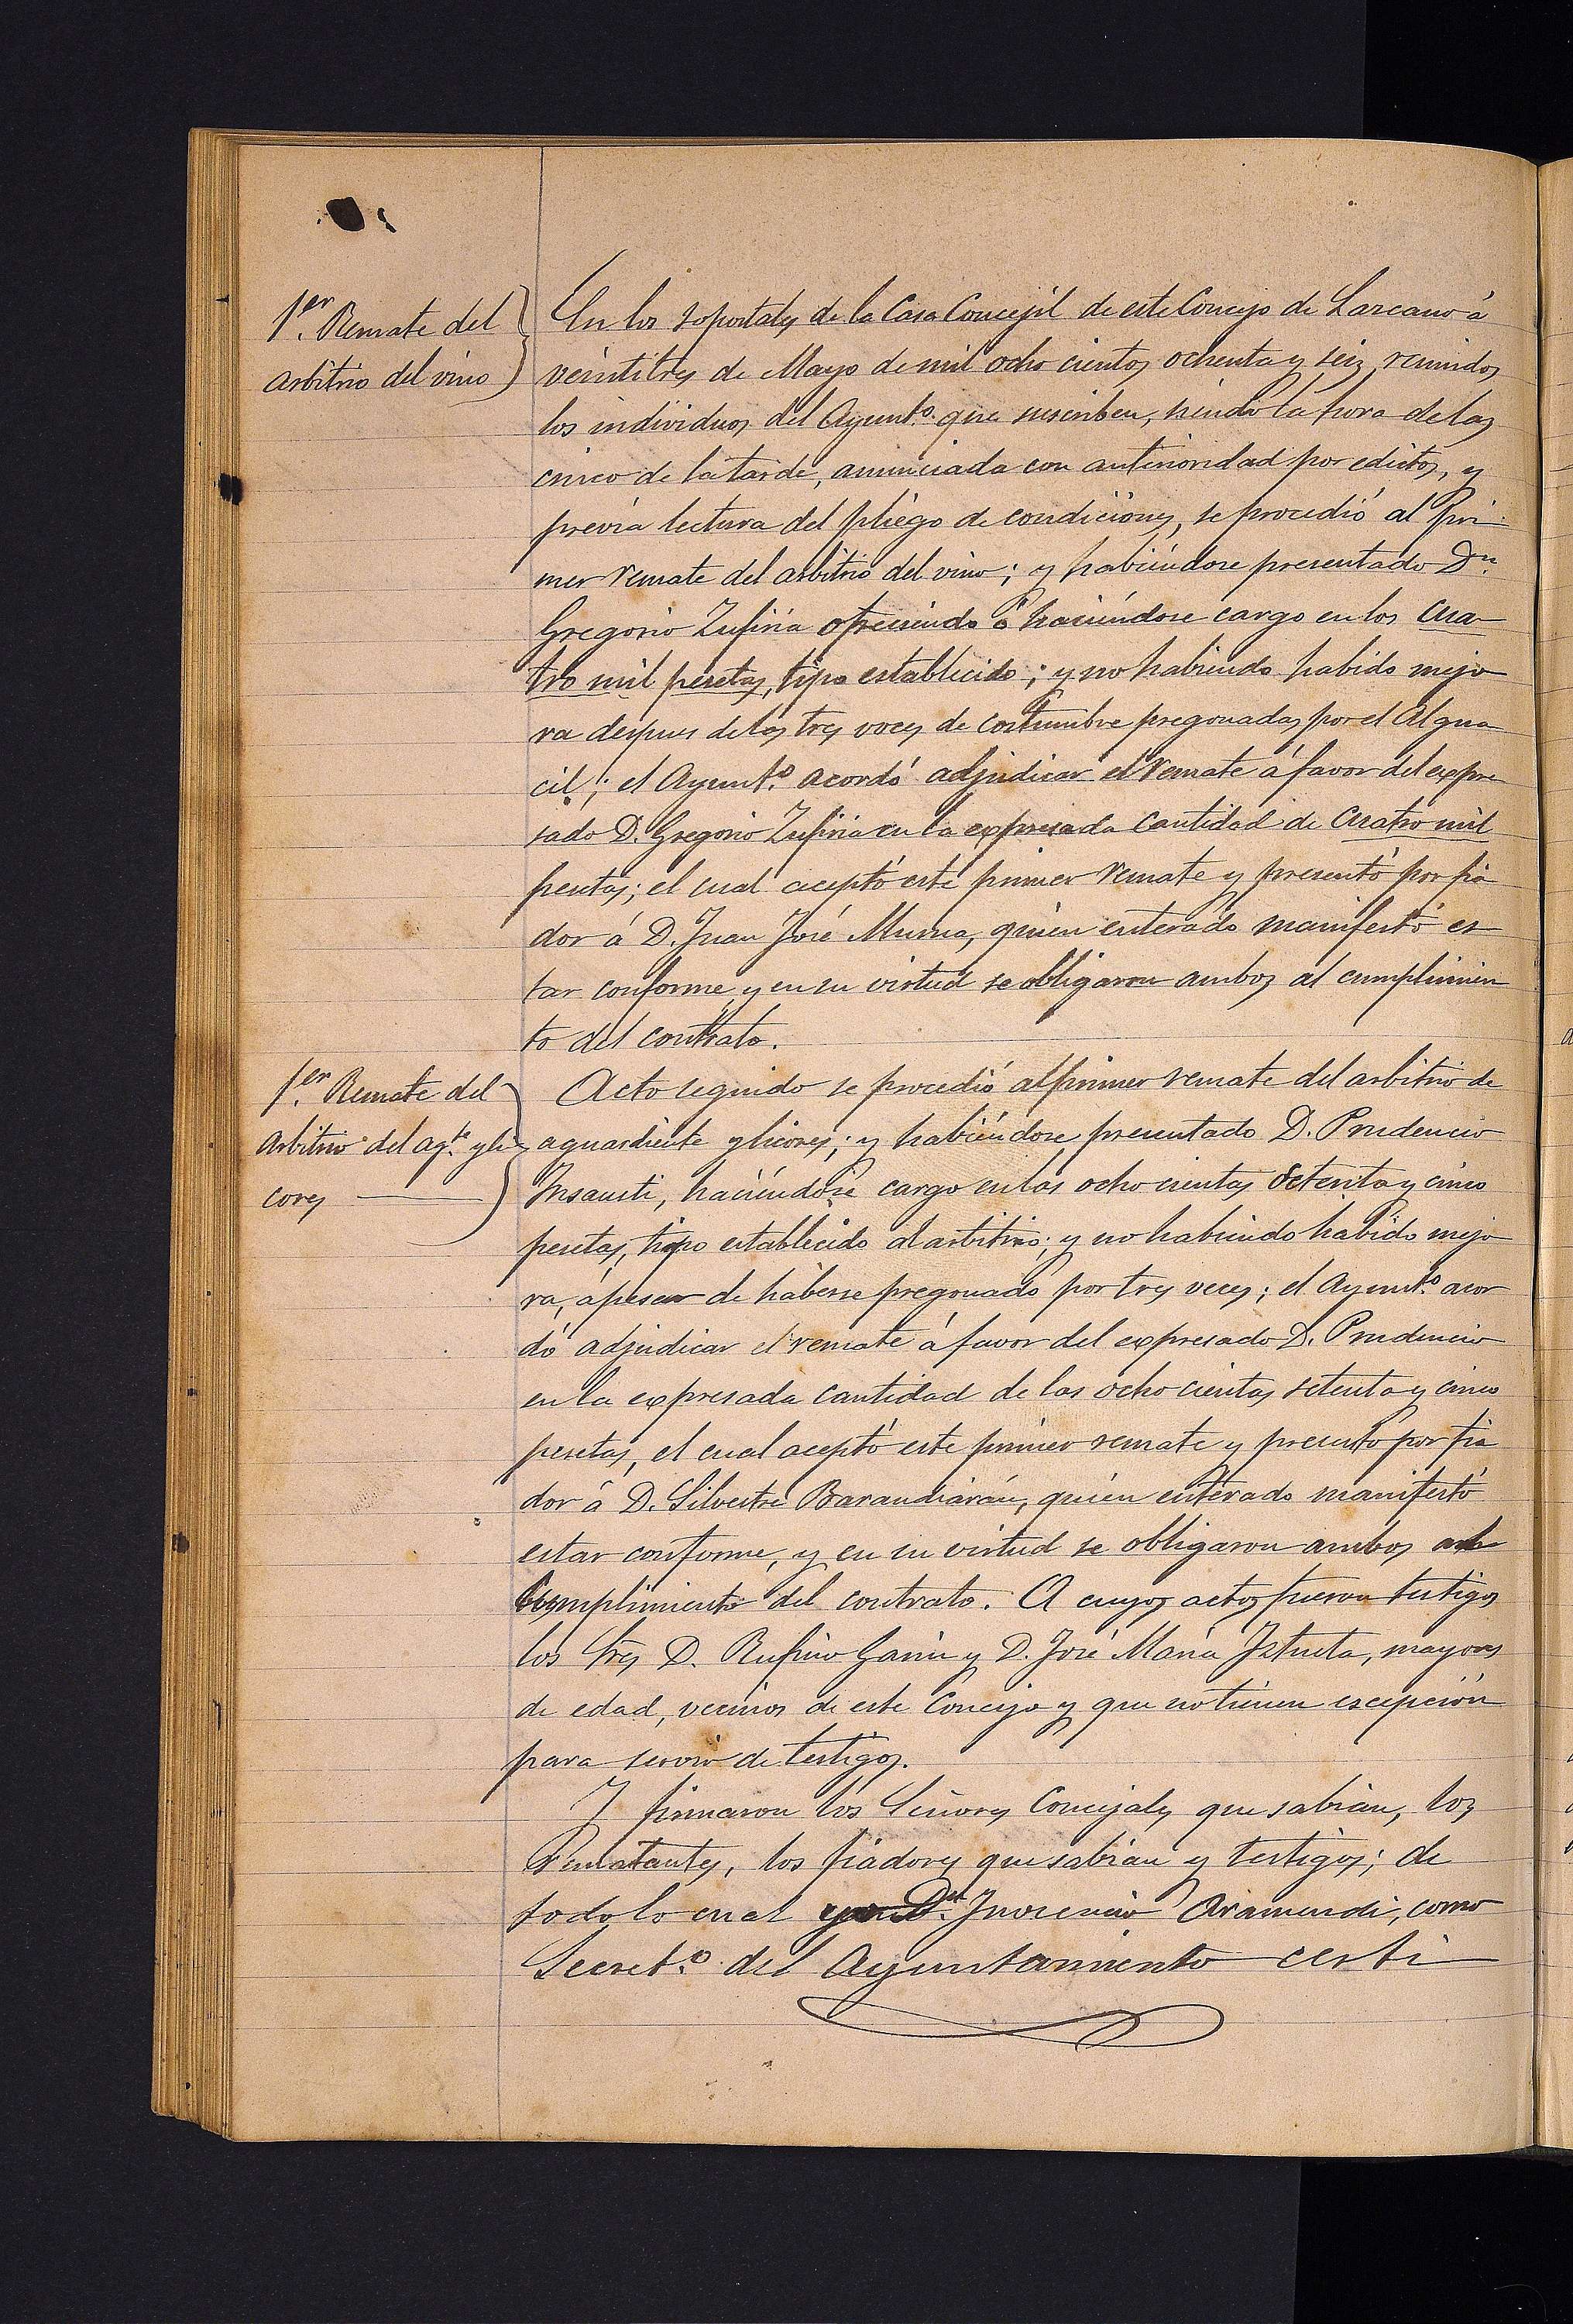 1.er Remate del
arbitrio del vino
En los soportales de la Casa Concejil de este Concejo de Lazcano á
veintitres de Mayo de mil ocho cientos ochenta y seis, reunidos
los individuos del Ayunt.o que suscriben, siendo la hora de las
cinco de la tarde, anunciada con anterioridad por edictos, y
previa lectura del pliego de condiciones, se procedió al pri-
mer remate del arbitrio del vino; y habiéndose presentado Dn.
Gregorio Zufiria ofreciendo á haciéndose cargo en los cua-
tro mil pesetas, tipo establecido; y no habiendo habido mejo-
ra despues de las tres voces de costumbre pregonadas por el Algua-
cil; el Ayunt.o acordó adjudicar el remate á favor del expre-
sado D. Gregorio Zufiria en la expresada cantidad de cuatro mil
pesetas; el cual aceptó este primer remate y presentó por fia-
dor á D. Juan José Murua, quien enterado manifestó es-
tar conforme y en su virtud se obligaron ambos al cumplimien-
to del contrato.
1.er Remate del
arbitrio del ag.te y li-
cores
Acto seguido se procedió al primer remate del arbitrio de
aguardiente y licores; y habiéndose presentado D. Prudencio
Insausti, haciéndose cargo en las ocho cientas setenta y cinco
pesetas, tipo establecido al arbitrio; y no habiendo habido mejo-
ra, á pesar de haberse pregonado por tres veces; el Ayunt.o acor-
dó adjudicar el remate á favor del expresado D. Prudencio
en la expresada cantidad de las ocho cientas setenta y cinco
pesetas, el cual aceptó este primer remate y presentó por fia-
dor á D. Silvestre Barandiarán, quien enterado manifestó
estar conforme, y en su virtud se obligaron ambos al
cumplimiento del contrato. A cuyos actos fueron testigos
los Sres D. Rufino Garin y D. José Maria Iztueta, mayores
de edad, vecinos de este Concejo y que no tienen escepción
para servir de testigos.
Y firmaron los Señores Concejales que sabian, los
Rematantes, los fiadores que sabian y testigos; de
todo lo cual yo Dn. Inocencio Aramendi, como
Secret.o del Ayuntamiento certi-